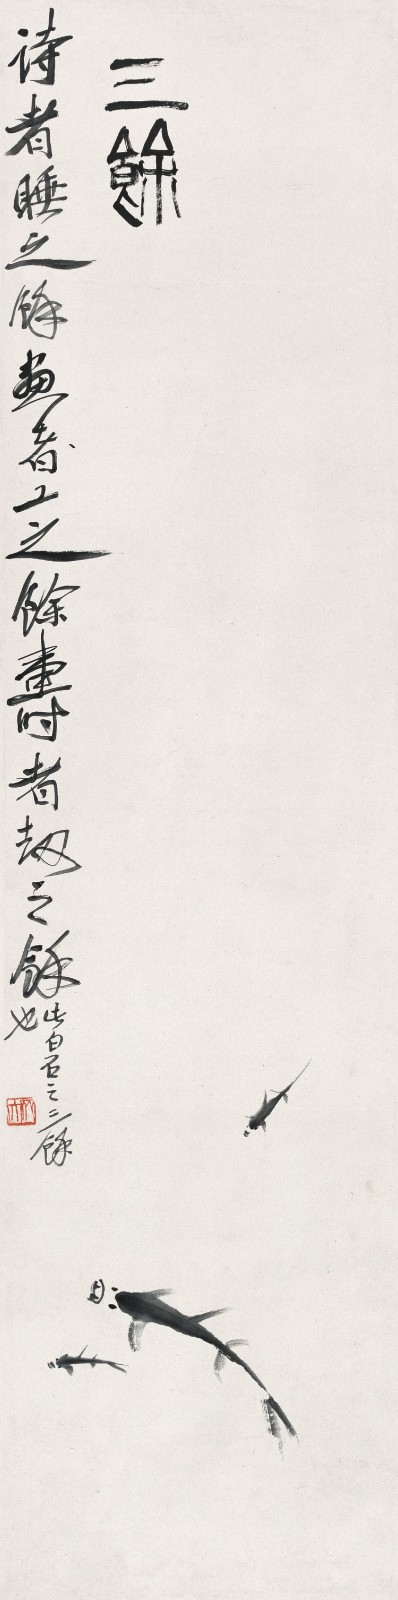 三餘
詩者睡之餘畫者工之餘壽者劫之餘也
此白石之三餘